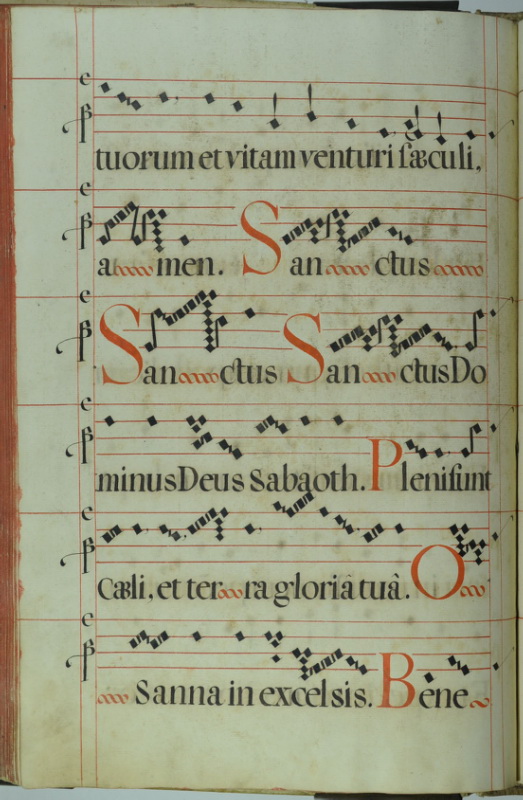 tuorum et vitam venturi sæculi,
a men. San ctus
San ctus San ctus Do
minus Deus Sabaoth. Pleni sunt
Cæli, et ter ra gloria tuâ. O
Sanna in excelsis. Bene